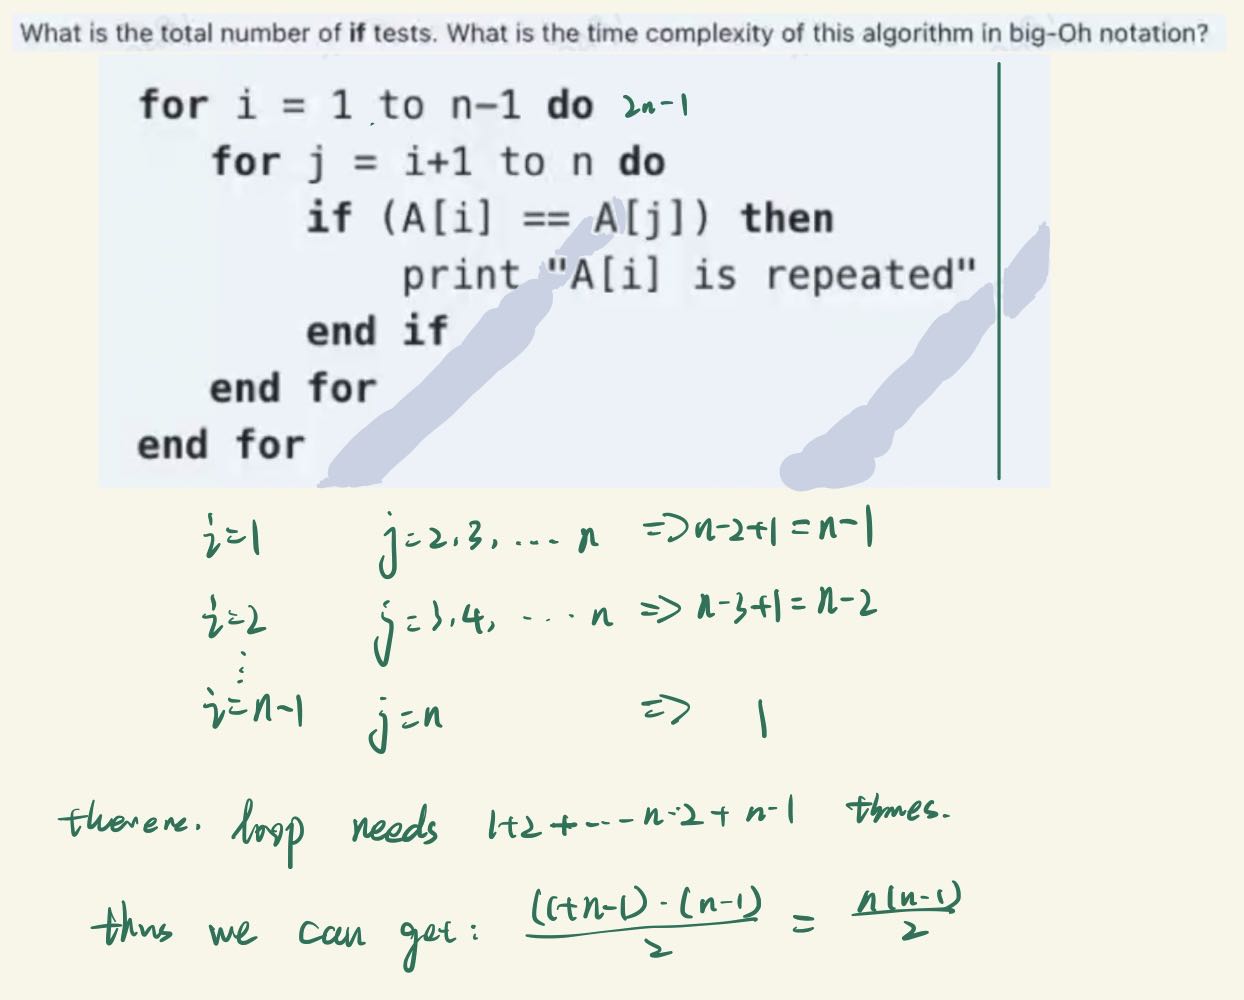 What is the total number of if tests. What is the time complexity of this algorithm in big-Oh notation?
for i = 1 to n-1 do 2n-1
for j = i+1 to n do
if (A[i] == A[j]) then
print "A[i] is repeated"
end if
end for
end for
i=1 j=2,3,.... n =>n-2+1=n-1
i=2 j=3,4, .... n => n-3+1=n-2
⋮
i=n-1 j=n => 1
loop needs 1+2+---n-2+n-1 times.
thus we can get: ((1+n-1)·(n-1))/2 = n(n-1)/2